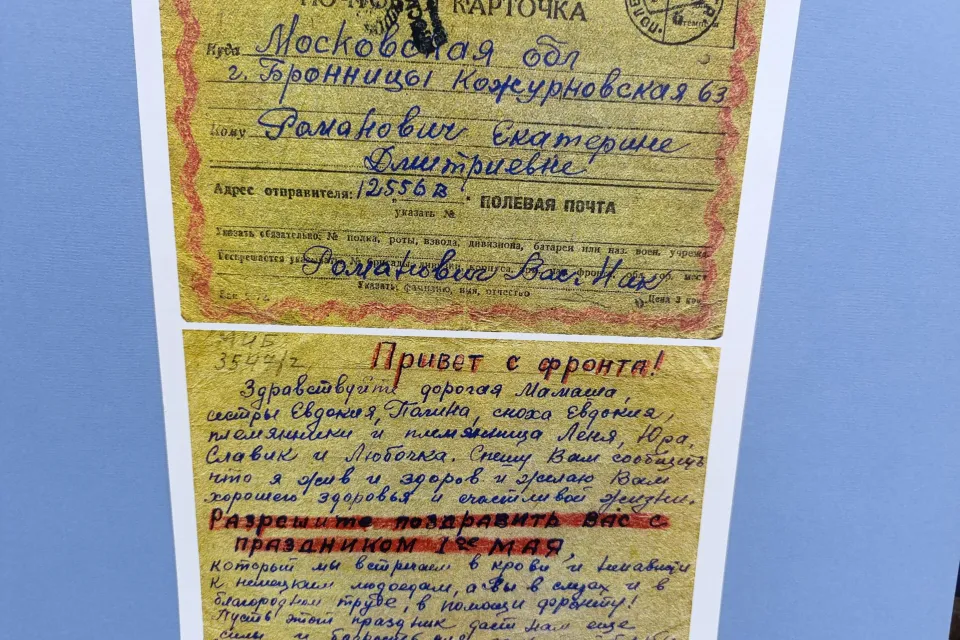 КАРТОЧКА
Куда Московская обл
г. Бронницы Кожурновская 63
Кому Романович Екатерине
Дмитриевне
Адрес отправителя: 12556 в ПОЛЕВАЯ ПОЧТА
указать №
Указать обязательно: № полка, роты, взвода, дивизиона, батареи или наз. воен. учрежд.
Романович Вас. Мак
Указать: фамилию, имя, отчество
Цена 3 коп
3547/2
Привет с фронта!
Здравствуйте дорогая Мамаша,
сестры Евдокия, Полина, сноха Евдокия,
племянники и племянница Леня, Юра,
Славик и Любочка. Спешу Вам сообщить
что я жив и здоров и желаю Вам
хорошего здоровья и счастливой жизни.
Разрешите поздравить Вас с
праздником 1ое МАЯ
который мы встречаем в крови и ненависти
к немецким людоедам, а Вы в слезах и в
благородном труде, в помощи фронту!
Пусть этот праздник даст нам еще
силы и